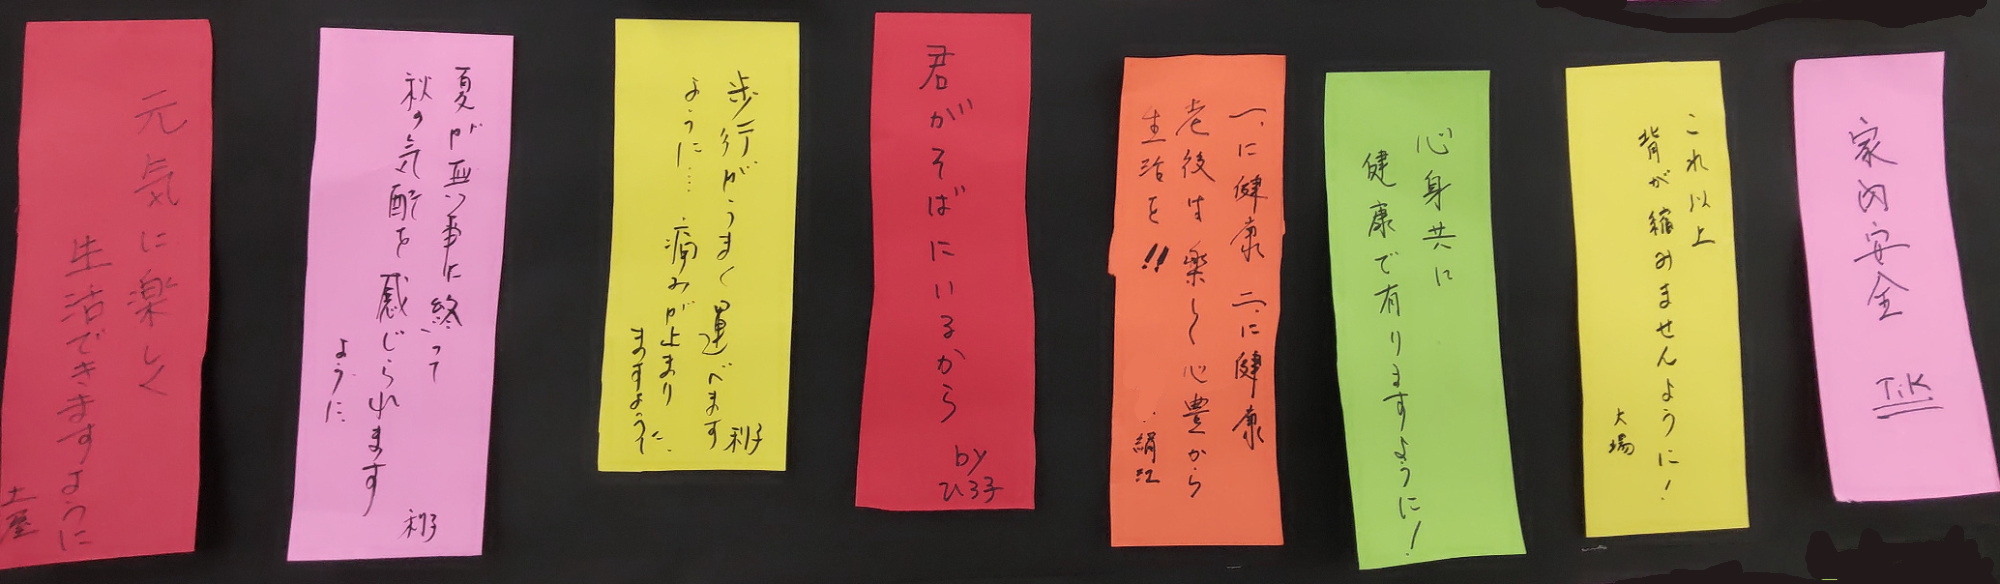 家内安全
T.K
これ以上
背が縮みませんように!
大場
心身共に
健康で有りますように!
一、に健康 二、に健康
老後は楽しく心豊から
生活を!!
絹江
君がそばにいるから
by
ひろ子
歩行がうまく運べます
ように…
痛みが止まり
ますように
利子
夏が無事に終って
秋の気配を感じられます
ように
利子
元気に楽しく
生活できますように
土屋